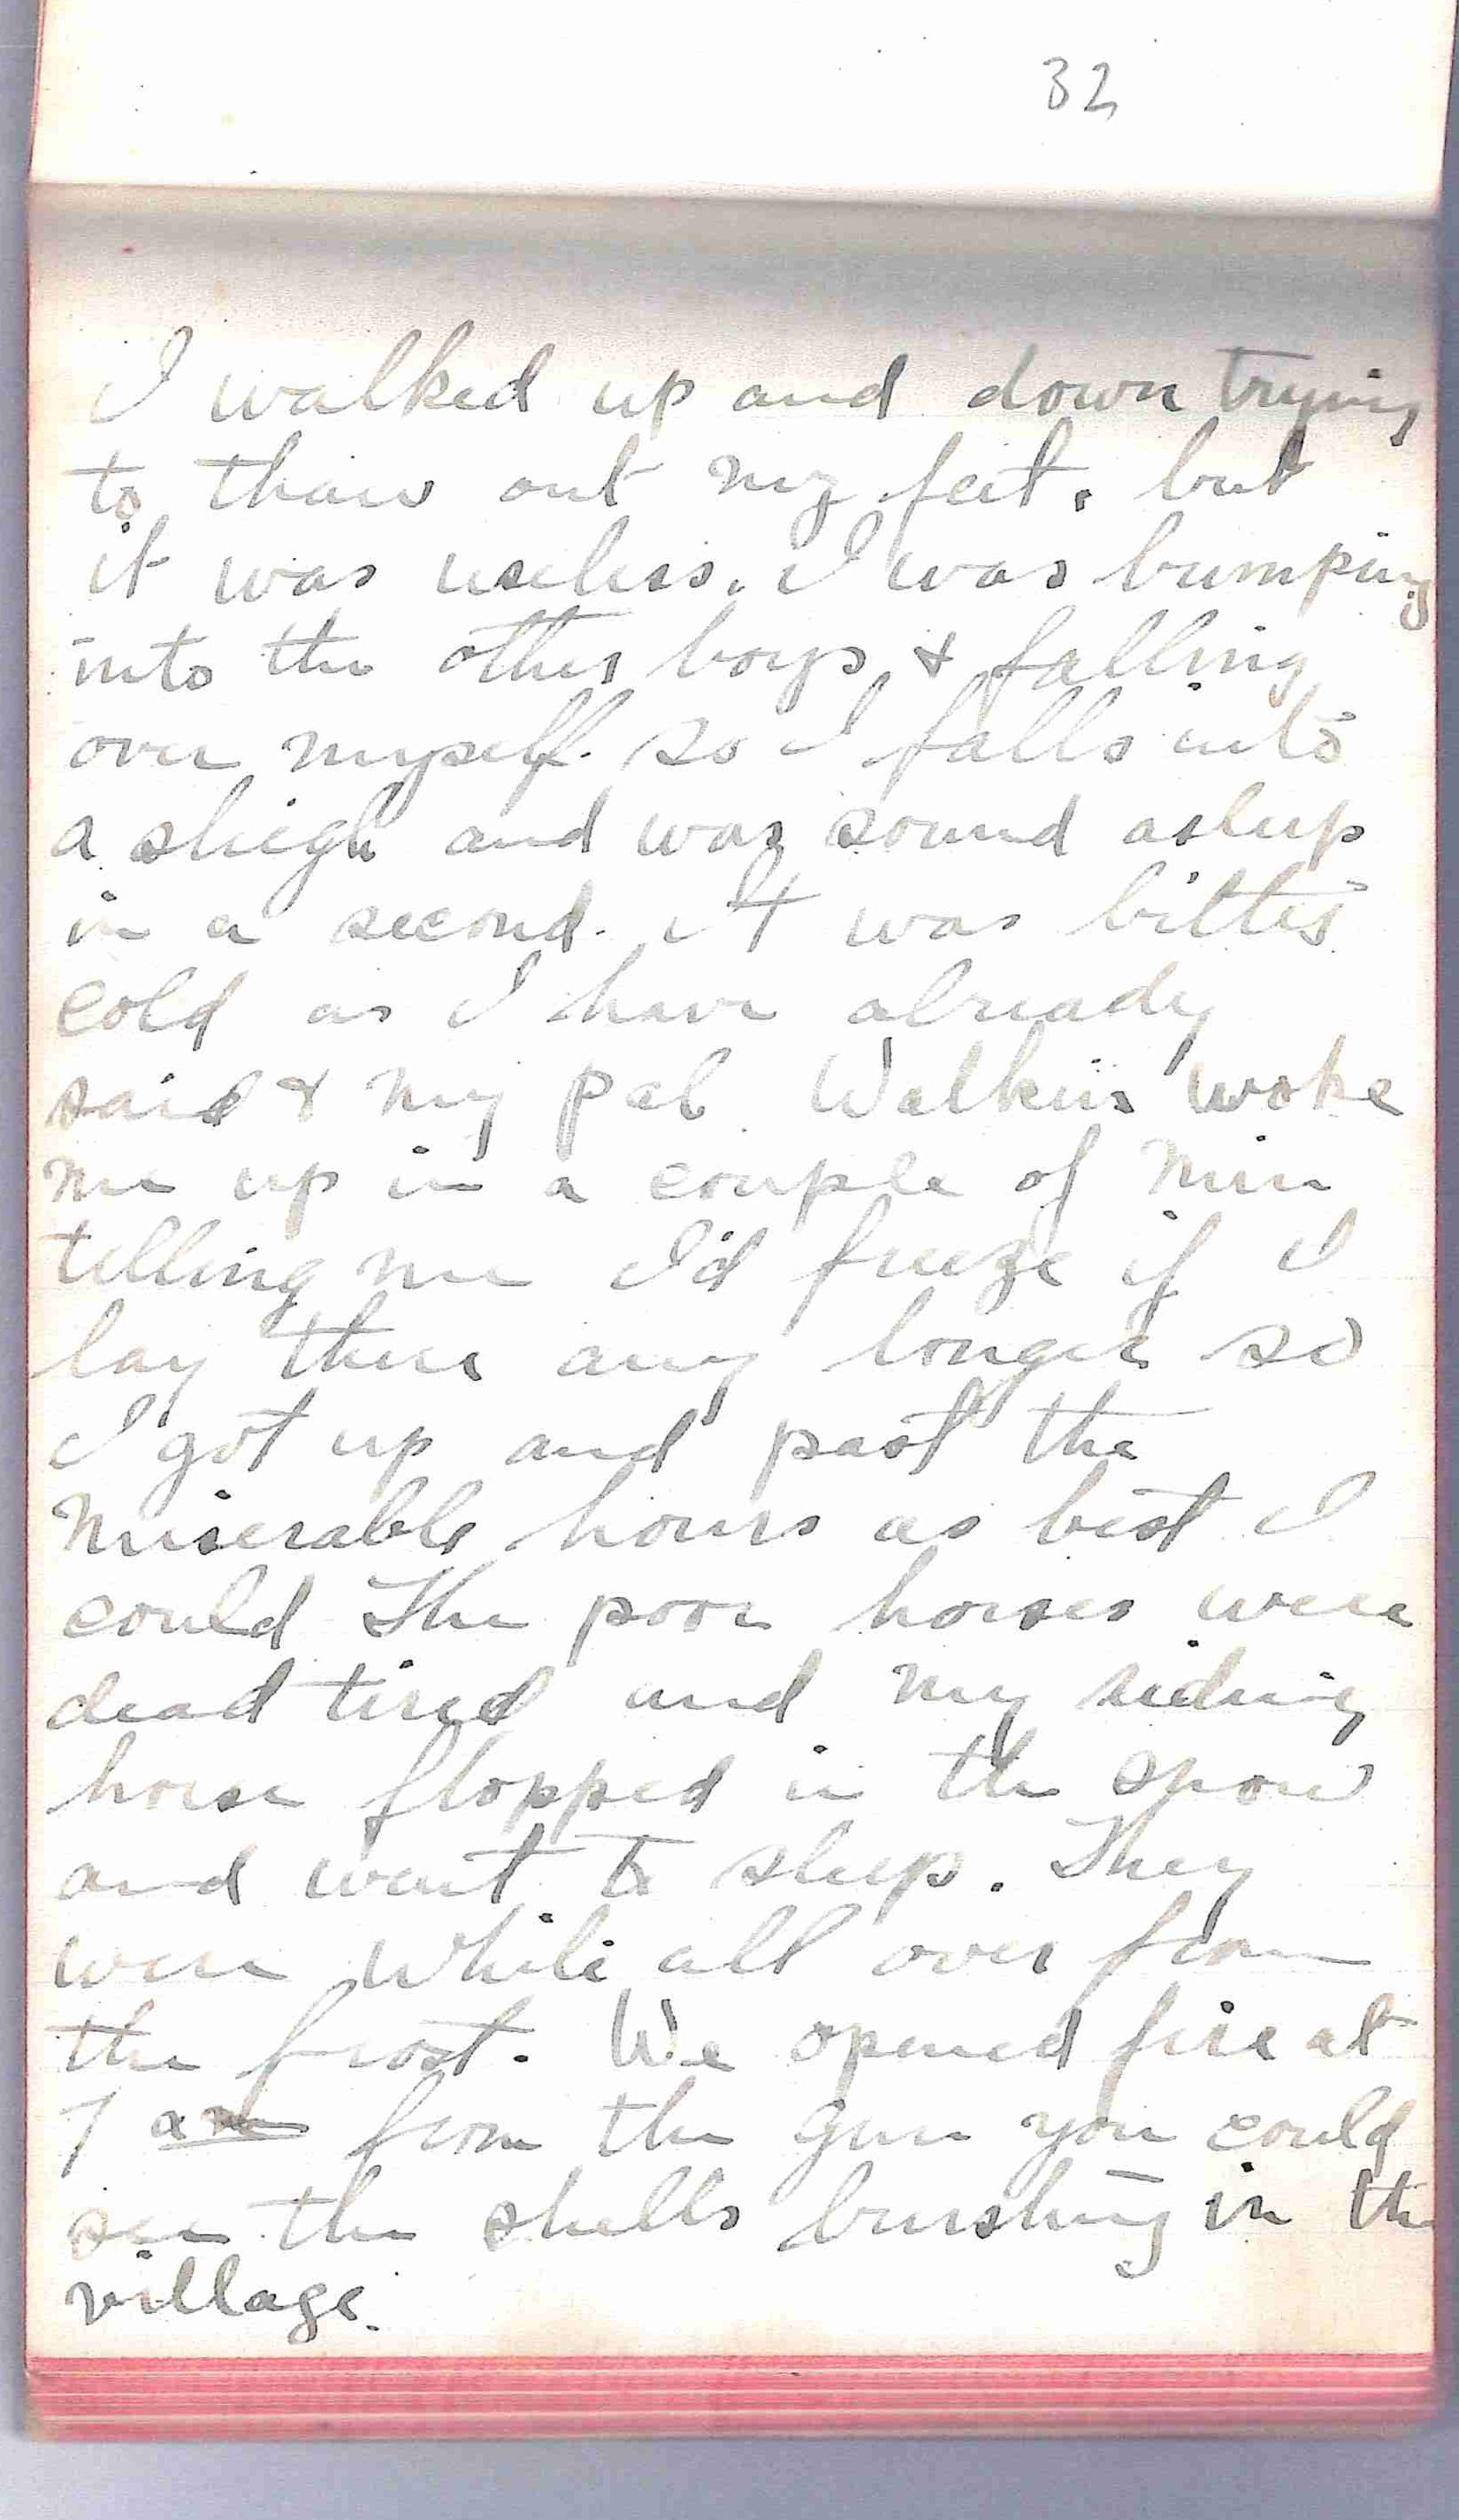 32
I walked up and down trying
to thaw out my feet. but
it was useless. I was bumping
into the other boys & falling
over myself. so I falls into
a sleigh and was sound asleep
in a second. It was bitter
cold as I have already
said & my pal Walkins woke
me up in a couple of min
telling me I'd freeze if I
lay there any longer so
I got up and past the
miserable hours as best I
could The poor horses were
dead tired and my riding
horse flopped in the snow
and went to sleep. They
were white all over from
the frost. We opened fire at
7 am from the gun you could
see the shells bursting in the
village.